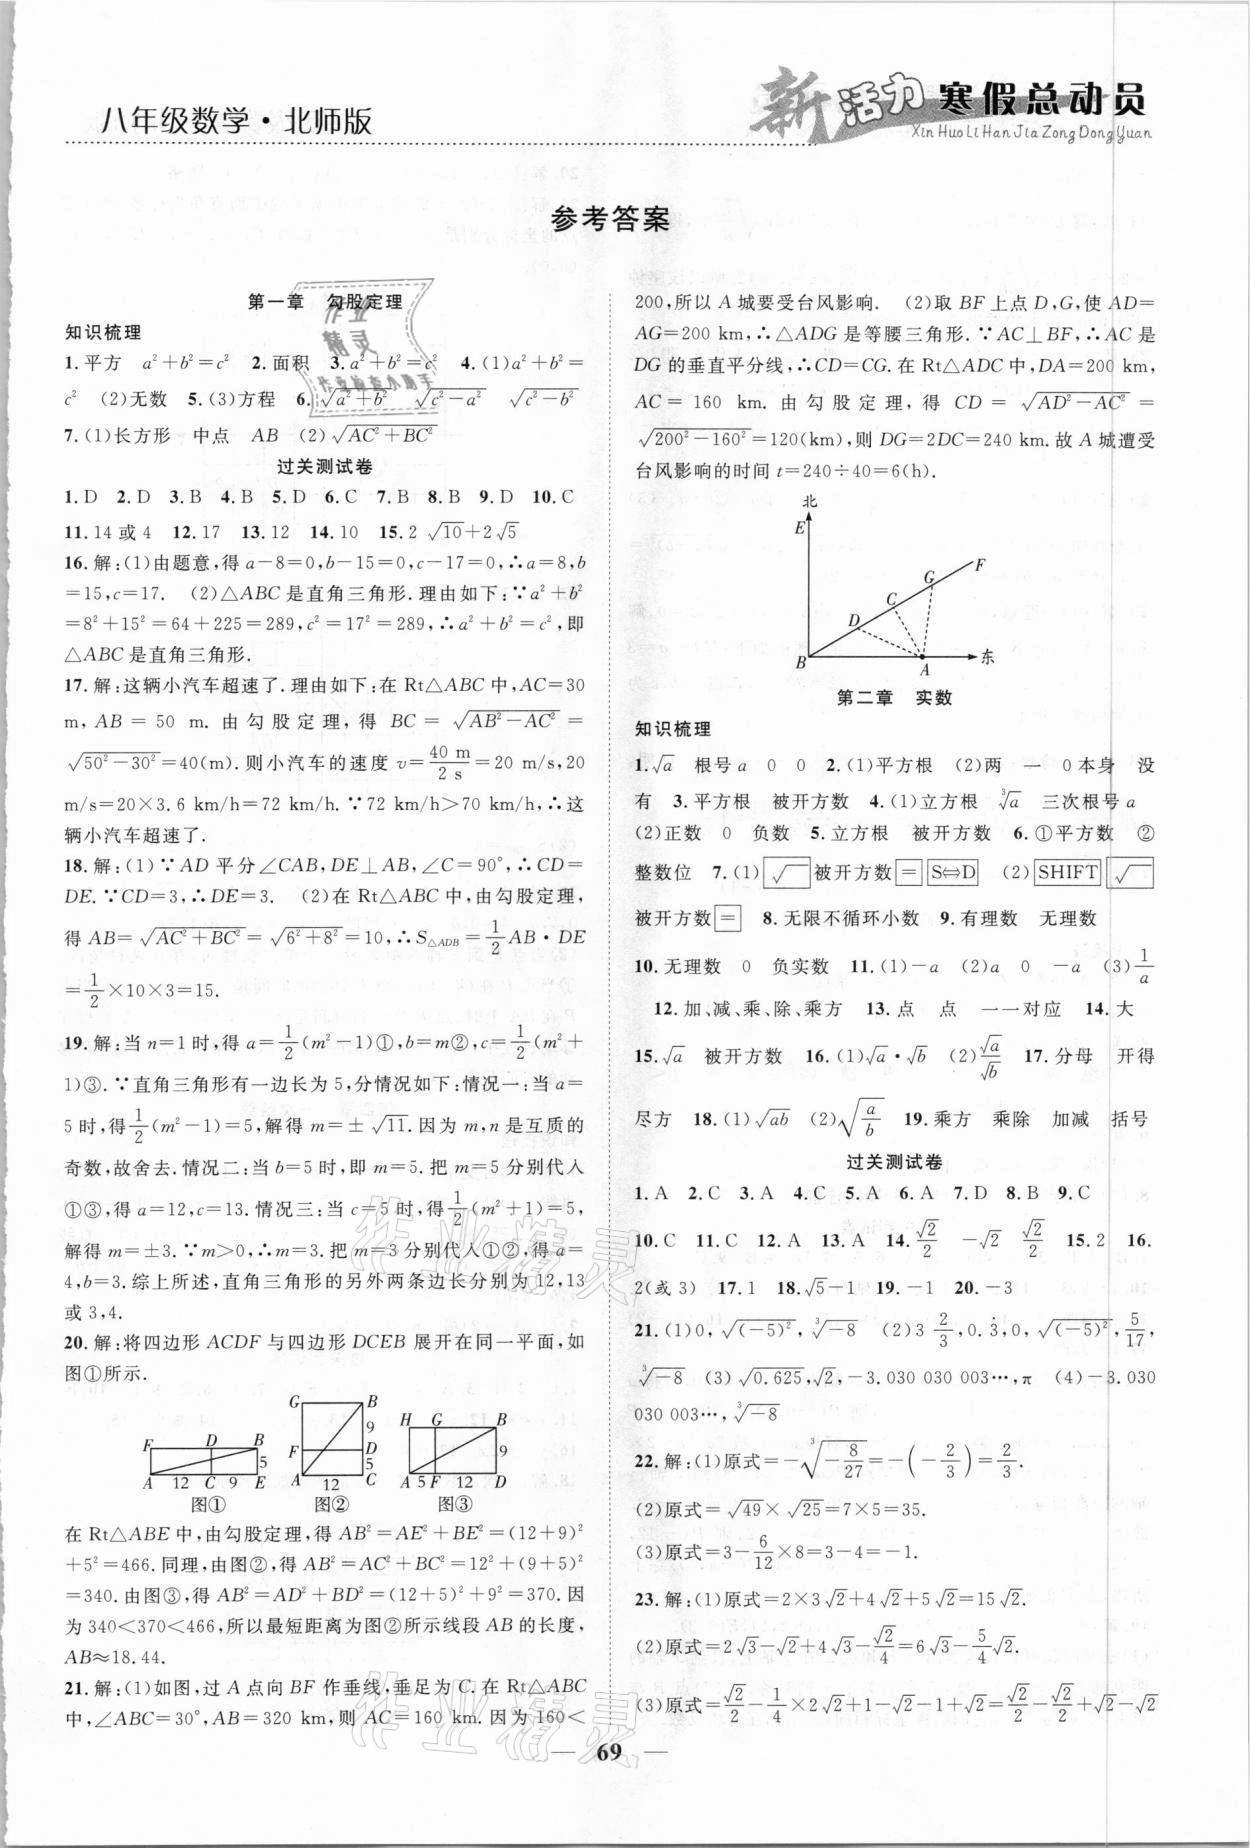 八年级数学·北师版
新活力寒假总动员
Xin Huo Li Han Jia Zong Dong Yuan
参考答案
第一章 勾股定理
知识梳理
1.平方 a²+b²=c² 2.面积 3.a²+b²=c² 4.(1)a²+b²=
c² (2)无数 5.(3)方程 6.√(a²+b²) √(c²-a²) √(c²-b²)
7.(1)长方形 中点 AB (2)√(AC²+BC²)
过关测试卷
1.D 2.D 3.B 4.B 5.D 6.C 7.B 8.B 9.D 10.C
11.14或4 12.17 13.12 14.10 15.2√10+2√5
16.解:(1)由题意,得a-8=0,b-15=0,c-17=0,∴a=8,b
=15,c=17. (2)△ABC是直角三角形.理由如下:∵a²+b²
=8²+15²=64+225=289,c²=17²=289,∴a²+b²=c²,即
△ABC是直角三角形.
17.解:这辆小汽车超速了.理由如下:在Rt△ABC中,AC=30
m,AB=50 m.由勾股定理,得BC=√(AB²-AC²)=
√(50²-30²)=40(m).则小汽车的速度v=40 m/2 s=20 m/s,20
m/s=20×3.6 km/h=72 km/h.∵72 km/h>70 km/h,∴这
辆小汽车超速了.
18.解:(1)∵AD平分∠CAB,DE⊥AB,∠C=90°,∴CD=
DE.∵CD=3,∴DE=3. (2)在Rt△ABC中,由勾股定理,
得AB=√(AC²+BC²)=√(6²+8²)=10,∴S△ADB=1/2AB·DE
=1/2×10×3=15.
19.解:当n=1时,得a=1/2(m²-1)①,b=m②,c=1/2(m²+
1)③.∵直角三角形有一边长为5,分情况如下:情况一:当a=
5时,得1/2(m²-1)=5,解得m=±√11.因为m,n是互质的
奇数,故舍去.情况二:当b=5时,即m=5.把m=5分别代入
①③,得a=12,c=13.情况三:当c=5时,得1/2(m²+1)=5,
解得m=±3.∵m>0,∴m=3.把m=3分别代入①②,得a=
4,b=3.综上所述,直角三角形的另外两条边长分别为12,13
或3,4.
20.解:将四边形ACDF与四边形DCEB展开在同一平面,如
图①所示.
F D B 5 A 12 C 9 E
图①
G B 9 F D 5 A 12 C
图②
H G B 9 A 5 F 12 D
图③
在Rt△ABE中,由勾股定理,得AB²=AE²+BE²=(12+9)²
+5²=466.同理,由图②,得AB²=AC²+BC²=12²+(9+5)²
=340.由图③,得AB²=AD²+BD²=(12+5)²+9²=370.因
为340<370<466,所以最短距离为图②所示线段AB的长度,
AB≈18.44.
21.解:(1)如图,过A点向BF作垂线,垂足为C.在Rt△ABC
中,∠ABC=30°,AB=320 km,则AC=160 km.因为160<
200,所以A城要受台风影响. (2)取BF上点D,G,使AD=
AG=200 km,∴△ADG是等腰三角形.∵AC⊥BF,∴AC是
DG的垂直平分线,∴CD=CG.在Rt△ADC中,DA=200 km,
AC=160 km.由勾股定理,得CD=√(AD²-AC²)=
√(200²-160²)=120(km),则DG=2DC=240 km.故A城遭受
台风影响的时间t=240÷40=6(h).
北
E
F
G
C
D
B A 东
第二章 实数
知识梳理
1.√a 根号a 0 0 2.(1)平方根 (2)两 一 0本身 没
有 3.平方根 被开方数 4.(1)立方根 ³√a 三次根号a
(2)正数 0 负数 5.立方根 被开方数 6.①平方数 ②
整数位 7.(1)[√‾]被开方数[=][S⇔D] (2)[SHIFT][√‾]
被开方数[=] 8.无限不循环小数 9.有理数 无理数
10.无理数 0 负实数 11.(1)-a (2)a 0 -a (3)1/a
12.加、减、乘、除、乘方 13.点 点 一一对应 14.大
15.√a 被开方数 16.(1)√a·√b (2)√a/√b 17.分母 开得
尽方 18.(1)√(ab) (2)√(a/b) 19.乘方 乘除 加减 括号
过关测试卷
1.A 2.C 3.A 4.C 5.A 6.A 7.D 8.B 9.C
10.C 11.C 12.A 13.A 14.√2/2 -√2 √2/2 15.2 16.
2(或3) 17.1 18.√5-1 19.-1 20.-3
21.(1)0,√(-5)²,³√-8 (2)3 2/3,0.3̇,0,√(-5)²,5/17,
³√-8 (3)√0.625,√2,-3.030 030 003…,π (4)-3.030
030 003…,³√-8
22.解:(1)原式=-³√(-8/27)=-(-2/3)=2/3.
(2)原式=√49×√25=7×5=35.
(3)原式=3-6/12×8=3-4=-1.
23.解:(1)原式=2×3√2+4√2+5√2=15√2.
(2)原式=2√3-√2+4√3-√2/4=6√3-5/4√2.
(3)原式=√2/2-1/4×2√2+1-√2-1+√2=√2/2-√2/2+√2-√2
— 69 —
作业精灵
作业精灵
作业
精灵
作业检查小助手